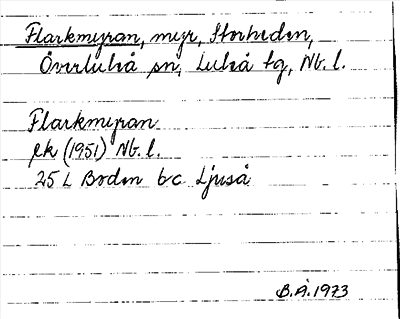 Flarkmyran, myr, Storheden,
Överluleå sn, Luleå tg, Nb. l.
Flarkmyran
ek (1951) Nb. l.
25 L Boden b c Ljuså
B.Å. 1973